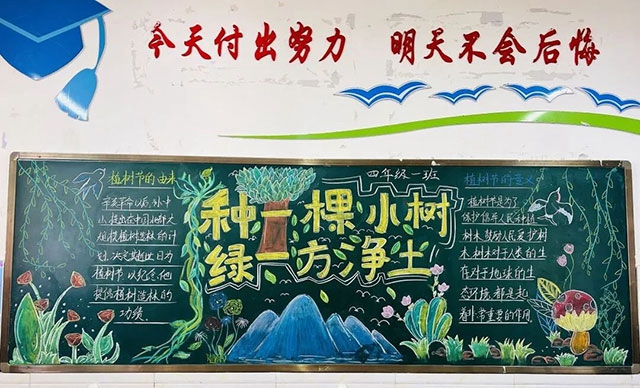 今天付出努力 明天不会后悔
四年级一班
种一棵小树
绿一方净土
植树节的由来
辛亥革命以后,孙中
山提出在中国北部大
规模植树造林的计
划,决定其逝世日为
植树节以纪念他
提倡植树造林的
功绩
植树节的意义
植树节是为了
保护倡导人民种植
树木,鼓励人民爱护树
木,树木对于人类的生
存,对于地球的生
态环境,都是起
着非常重要的作用.